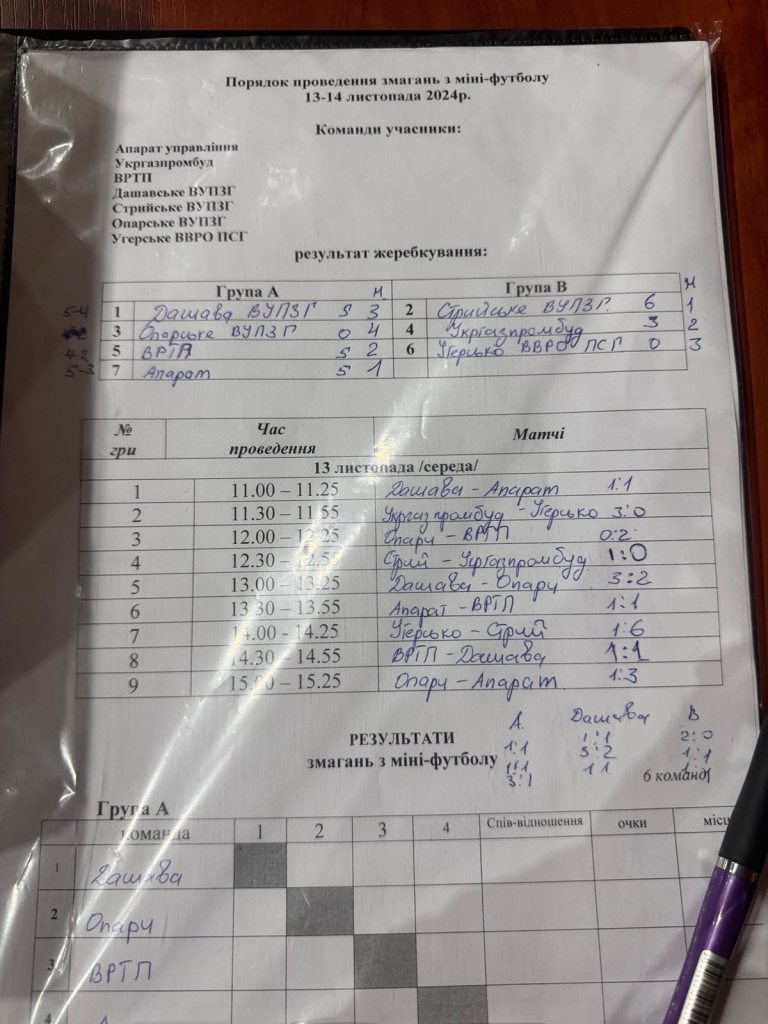 Порядок проведення змагань з міні-футболу
13-14 листопада 2024р.
Команди учасники:
Апарат управління
Укргазпромбуд
ВРТП
Дашавське ВУПЗГ
Стрийське ВУПЗГ
Опарське ВУПЗГ
Угерське ВВРО ПСГ
результат жеребкування:
Група А М Група В М
5-4 1 Дашава ВУПЗГ 5 3 2 Стрийське ВУПЗГ. 6 1
3 Опарське ВУПЗГ 0 4 4 Укргазпромбуд 3 2
4-2 5 ВРТП 5 2 6 Угерсько ВВРО ПСГ 0 3
5-3 7 Апарат 5 1
№ гри Час проведення Матчі
13 листопада /середа/
1 11.00 – 11.25 Дашава - Апарат 1:1
2 11.30 – 11.55 Укргазпромбуд - Угерсько 3:0
3 12.00 – 12.25 Опари - ВРТП 0:2
4 12.30 – 12.55 Стрий - Укргазпромбуд 1:0
5 13.00 – 13.25 Дашава - Опари 3:2
6 13.30 – 13.55 Апарат - ВРТП 1:1
7 14.00 - 14.25 Угерсько - Стрий 1:6
8 14.30 – 14.55 ВРТП - Дашава 1:1
9 15.00 – 15.25 Опари - Апарат. 1:3
А. Дашава В
РЕЗУЛЬТАТИ 1:1 1:1 2:0
змагань з міні-футболу 1:1 3:2 1:1
3:1 1:1 1:1
6 команд
Група А
команда 1 2 3 4 Спів-відношення очки місц
1 Дашава
2 Опари
3 ВРТП
4